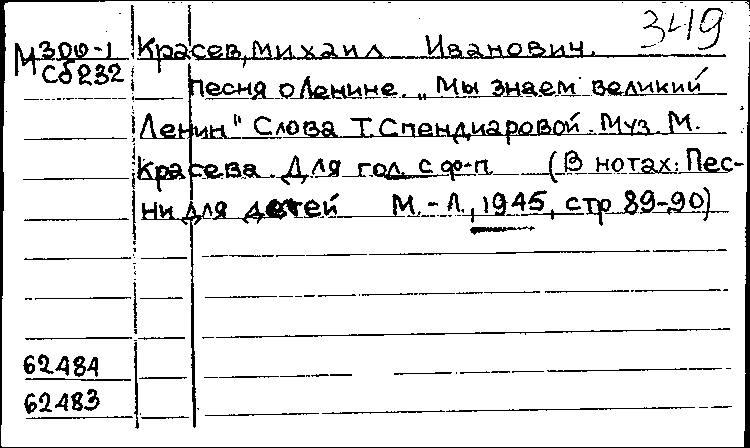 349
М 300-1 Красев, Михаил Иванович.
Сб 232
Песня о Ленине. „Мы знаем великий
Ленин" Слова Т. Спендиаровой. Муз. М.
Красева. Для гол. с ф-п (В нотах: Пес-
ни для детей М.-Л., 1945, стр 89-90)
62484
62483